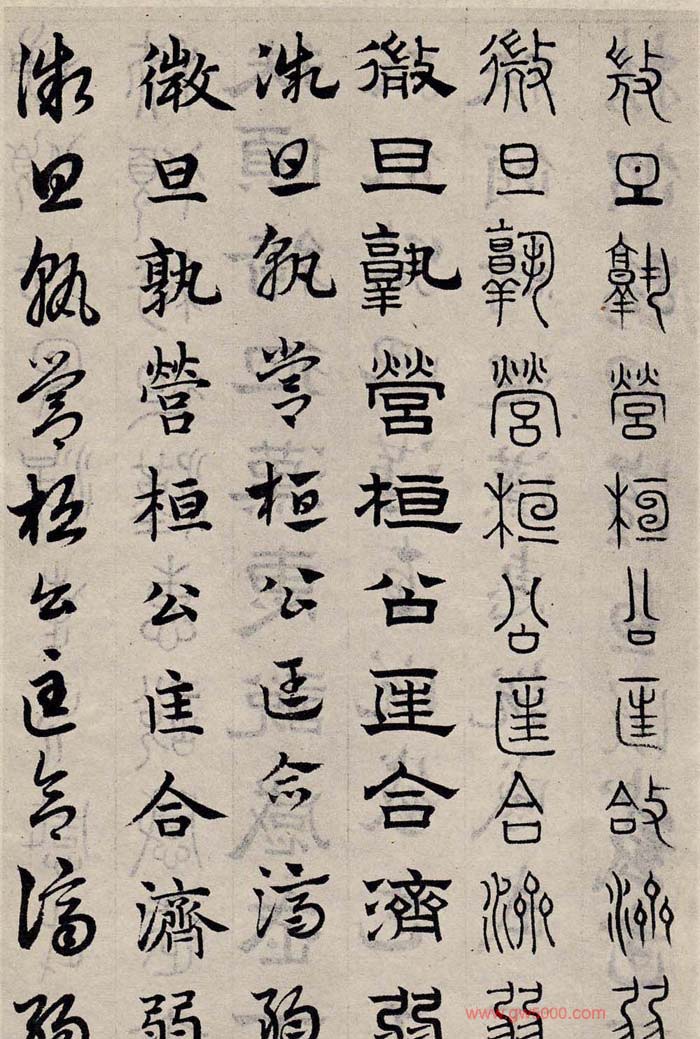 微旦孰營桓公匡合濟弱
微旦孰營桓公匡合濟弱
微旦孰營桓公匡合濟弱
微旦孰營桓公匡合濟弱
微旦孰營桓公匡合濟弱
微旦孰營桓公匡合濟弱
www.gw5000.com